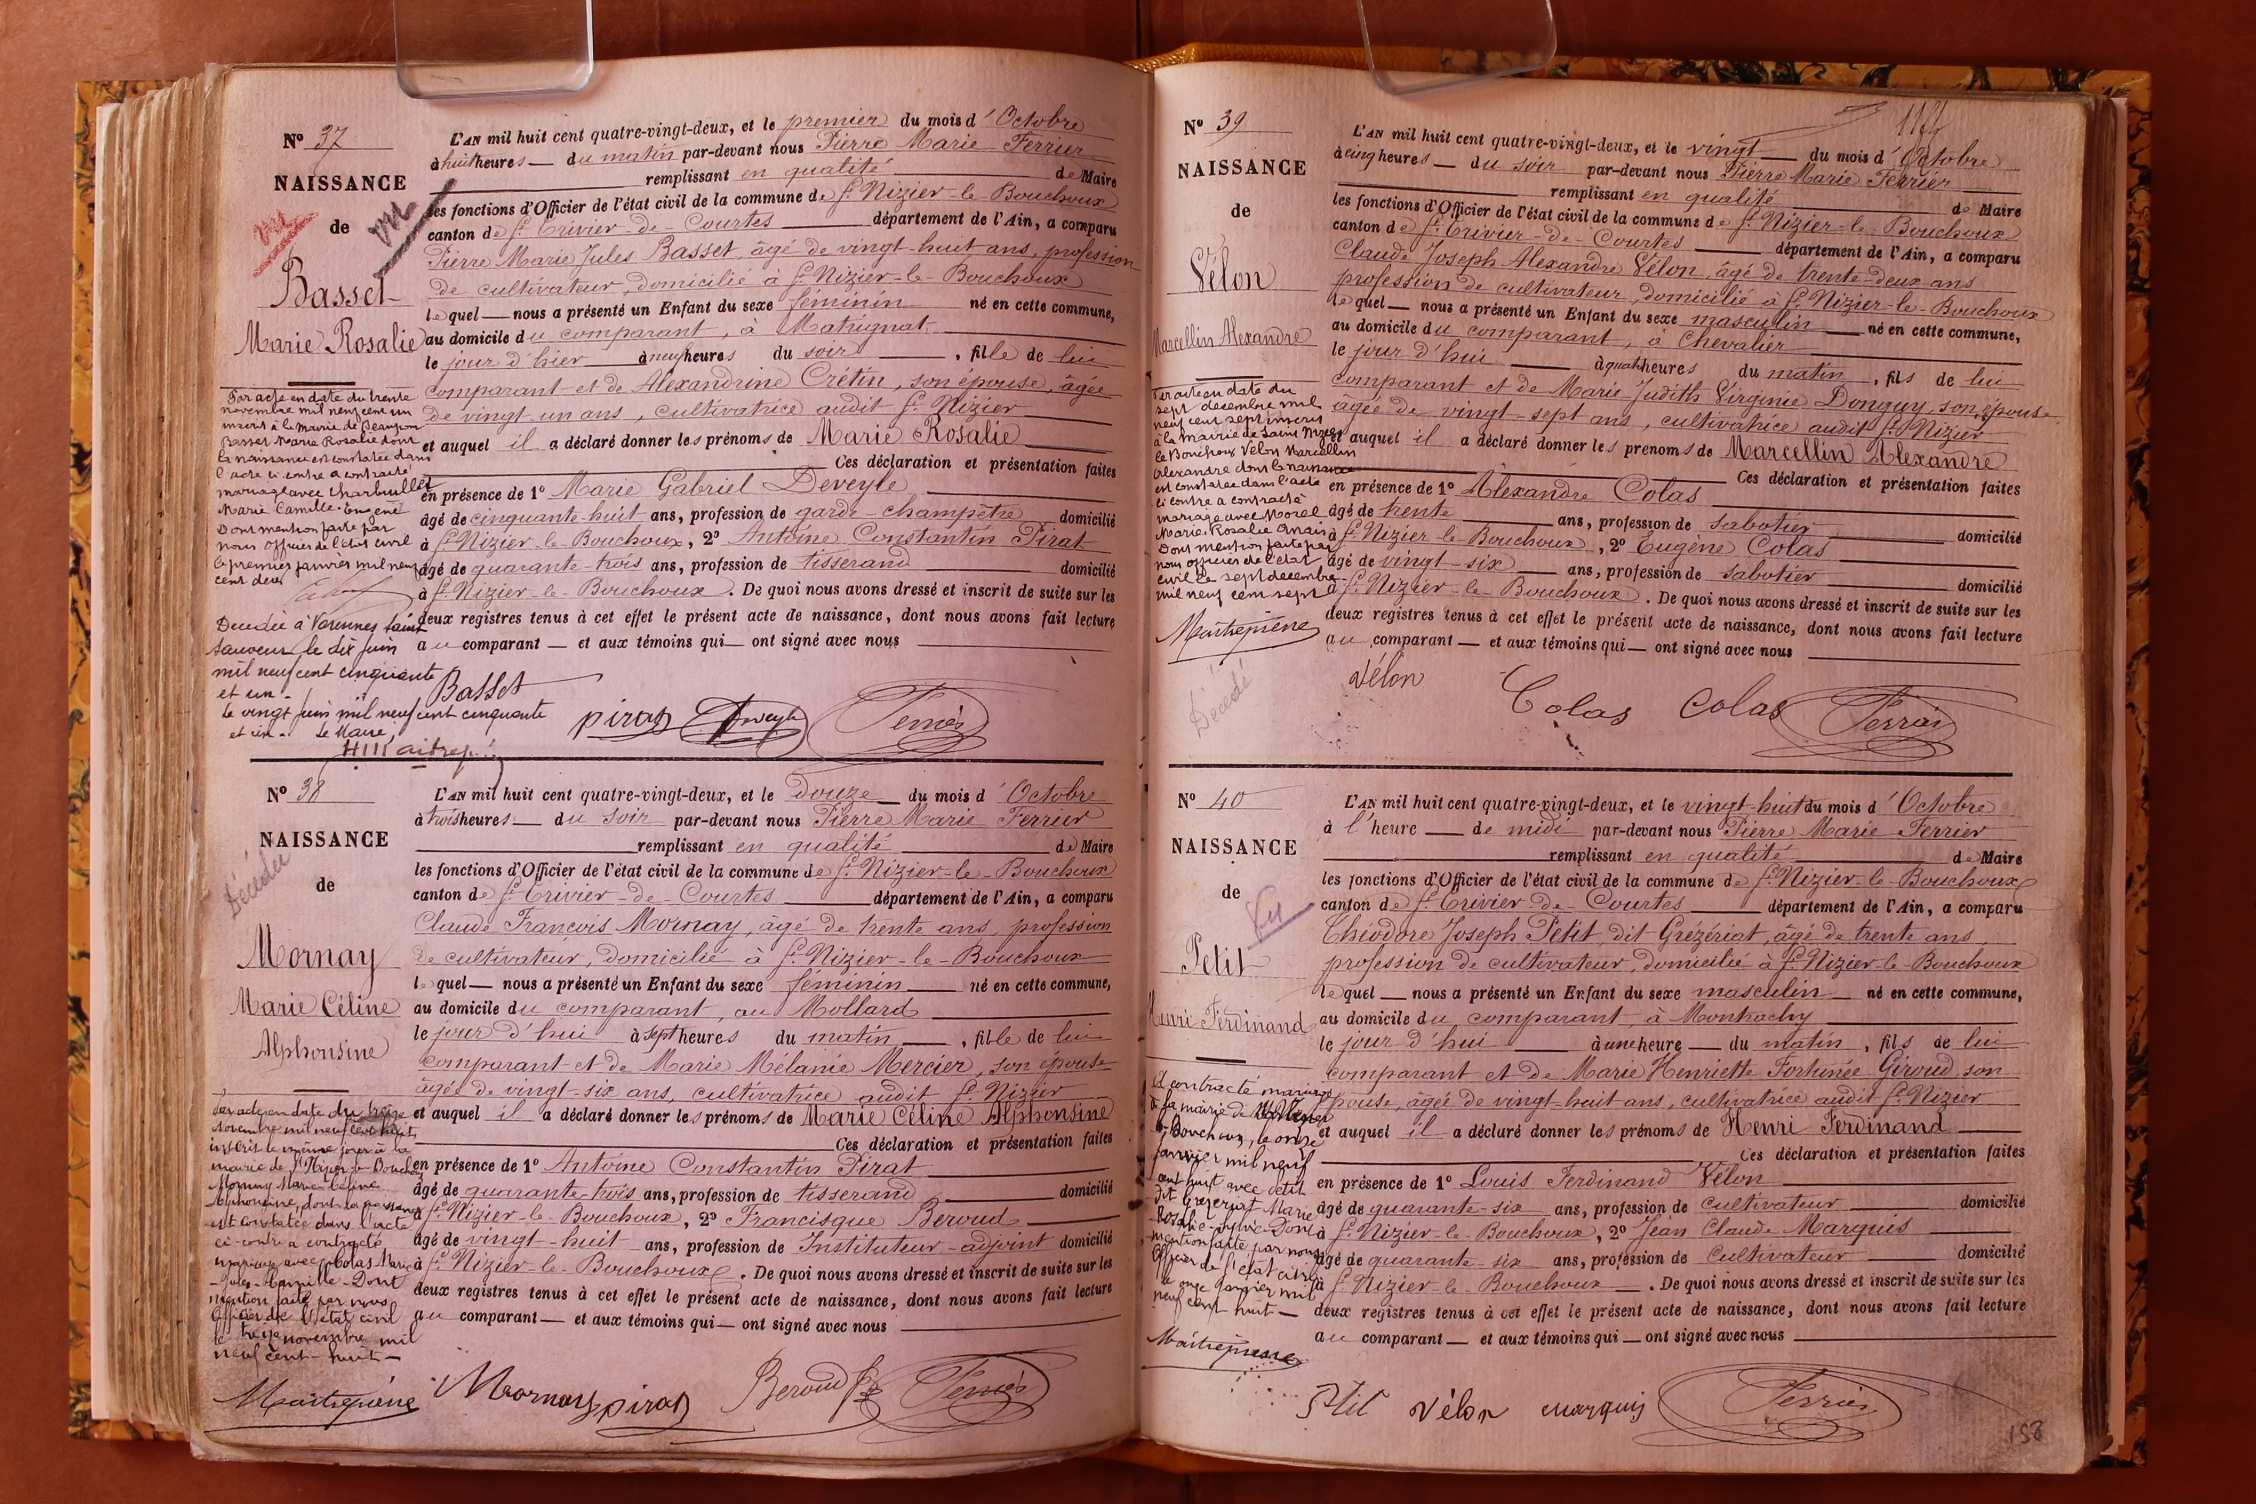 N° 37
NAISSANCE
de
vu
vu
Basset
Marie Rosalie
Par acte en date du trente
novembre mil neuf cent un
inscrit à la Mairie de Beaupon
Basset Marie Rosalie dont
la naissance est constatée dans
l'acte ci-contre a contracté
mariage avec Charbuillet
Marie Camille Eugène
Dont mention faite par
nous officier de l'état civil
le premier janvier mil neuf
cent deux
Décédée à Varennes Saint
Sauveur le six juin
mil neuf cent cinquante
et un -
le vingt juin mil neuf cent cinquante
et un - le Maire,
L'AN mil huit cent quatre-vingt-deux, et le premier du mois d'Octobre
à huit heures — du matin par-devant nous Pierre Marie Ferrier
remplissant en qualité de Maire
les fonctions d'Officier de l'état civil de la commune de St Nizier-le-Bouchoux
canton de St Trivier-de-Courtes département de l'Ain, a comparu
Pierre Marie Jules Basset, âgé de vingt-huit ans, profession
de cultivateur, domicilié à St Nizier-le-Bouchoux
lequel — nous a présenté un Enfant du sexe féminin né en cette commune,
au domicile du comparant, à Matrignat
le jour d'hier à neuf heures du soir, fille de lui
comparant et de Alexandrine Crétin, son épouse, âgée
de vingt un ans, cultivatrice audit St Nizier
et auquel il a déclaré donner les prénoms de Marie Rosalie
Ces déclaration et présentation faites
en présence de 1° Marie Gabriel Deveyle
âgé de cinquante-huit ans, profession de garde-champêtre domicilié
à St Nizier-le-Bouchoux, 2° Antoine Constantin Pirat
âgé de quarante-trois ans, profession de tisserand domicilié
à St Nizier-le-Bouchoux. De quoi nous avons dressé et inscrit de suite sur les
deux registres tenus à cet effet le présent acte de naissance, dont nous avons fait lecture
au comparant — et aux témoins qui — ont signé avec nous
Basset pirat Deveyle Ferrier
N° 38
NAISSANCE
de
Décédée
Mornay
Marie Céline
Alphonsine
Par acte en date du treize
novembre mil neuf cent huit
inscrit le même jour à la
mairie de St Nizier-le-Bouchoux
Mornay Marie Céline
Alphonsine, dont la naissance
est constatée dans l'acte
ci-contre a contracté
mariage avec Colas Marie
- Jules - Camille - Dont
mention faite par nous
Officier de l'état civil
le treize novembre mil
neuf cent huit —
Maitrepierre
L'AN mil huit cent quatre-vingt-deux, et le douze du mois d'Octobre
à trois heures — du soir par-devant nous Pierre Marie Ferrier
remplissant en qualité de Maire
les fonctions d'Officier de l'état civil de la commune de St Nizier-le-Bouchoux
canton de St Trivier-de-Courtes département de l'Ain, a comparu
Claude François Mornay, âgé de trente ans, profession
de cultivateur, domicilié à St Nizier-le-Bouchoux
lequel — nous a présenté un Enfant du sexe féminin né en cette commune,
au domicile du comparant, au Mollard
le jour d'hui à sept heures du matin, fille de lui
comparant et de Marie Mélanie Mercier, son épouse
âgée de vingt-six ans, cultivatrice audit St Nizier
et auquel il a déclaré donner les prénoms de Marie Céline Alphonsine
Ces déclaration et présentation faites
en présence de 1° Antoine Constantin Pirat
âgé de quarante-trois ans, profession de tisserand domicilié
à St Nizier-le-Bouchoux, 2° Francisque Beroud
âgé de vingt-huit ans, profession de Instituteur-adjoint domicilié
à St Nizier-le-Bouchoux. De quoi nous avons dressé et inscrit de suite sur les
deux registres tenus à cet effet le présent acte de naissance, dont nous avons fait lecture
au comparant — et aux témoins qui — ont signé avec nous
Mornay pirat Beroud Ferrier
N° 39
NAISSANCE
de
Vélon
Marcellin Alexandre
Par acte en date du
sept décembre mil
neuf cent sept inscrit
à la mairie de Saint Nizier
le Bouchoux Vélon Marcellin
Alexandre dont la naissance
est constatée dans l'acte
ci contre a contracté
mariage avec Morel
Marie Rosalie Anaïs
Dont mention faite par
nous officier de l'état
civil le sept décembre
mil neuf cent sept
Maitrepierre
Décédé
L'AN mil huit cent quatre-vingt-deux, et le vingt du mois d'Octobre
à cinq heures — du soir par-devant nous Pierre Marie Ferrier
remplissant en qualité de Maire
les fonctions d'Officier de l'état civil de la commune de St Nizier-le-Bouchoux
canton de St Trivier-de-Courtes département de l'Ain, a comparu
Claude Joseph Alexandre Vélon, âgé de trente-deux ans
profession de cultivateur, domicilié à St Nizier-le-Bouchoux
lequel — nous a présenté un Enfant du sexe masculin né en cette commune,
au domicile du comparant, à Chevalier
le jour d'hui à quatre heures du matin, fils de lui
comparant et de Marie Judith Virginie Donguy, son épouse
âgée de vingt-sept ans, cultivatrice audit St Nizier
et auquel il a déclaré donner les prénoms de Marcellin Alexandre
Ces déclaration et présentation faites
en présence de 1° Alexandre Colas
âgé de trente ans, profession de sabotier domicilié
à St Nizier-le-Bouchoux, 2° Eugène Colas
âgé de vingt-six ans, profession de sabotier domicilié
à St Nizier-le-Bouchoux. De quoi nous avons dressé et inscrit de suite sur les
deux registres tenus à cet effet le présent acte de naissance, dont nous avons fait lecture
au comparant — et aux témoins qui — ont signé avec nous
Vélon Colas Colas Ferrier
N° 40
NAISSANCE
de
Vu
Petit
Henri Ferdinand
A contracté mariage
à la mairie de St Nizier
le Bouchoux, le onze
janvier mil neuf
cent huit avec Petit
dit Grézériat Marie
Rosalie-Sylvie-Dont
mention faite par nous
Officier de l'état civil
le onze janvier mil
neuf cent huit —
Maitrepierre
L'AN mil huit cent quatre-vingt-deux, et le vingt-huit du mois d'Octobre
à l'heure — de midi par-devant nous Pierre Marie Ferrier
remplissant en qualité de Maire
les fonctions d'Officier de l'état civil de la commune de St Nizier-le-Bouchoux
canton de St Trivier-de-Courtes département de l'Ain, a comparu
Théodore Joseph Petit, dit Grézériat, âgé de trente ans
profession de cultivateur, domicilié à St Nizier-le-Bouchoux
lequel — nous a présenté un Enfant du sexe masculin né en cette commune,
au domicile du comparant, à Montrachy
le jour d'hui à une heure — du matin, fils de lui
comparant et de Marie Henriette Fortunée Giroud, son
épouse, âgée de vingt-huit ans, cultivatrice audit St Nizier
et auquel il a déclaré donner les prénoms de Henri Ferdinand
Ces déclaration et présentation faites
en présence de 1° Louis Ferdinand Vélon
âgé de quarante-six ans, profession de cultivateur domicilié
à St Nizier-le-Bouchoux, 2° Jean Claude Marquis
âgé de quarante-six ans, profession de Cultivateur domicilié
à St Nizier-le-Bouchoux. De quoi nous avons dressé et inscrit de suite sur les
deux registres tenus à cet effet le présent acte de naissance, dont nous avons fait lecture
au comparant — et aux témoins qui — ont signé avec nous
Petit Vélon marquis Ferrier
158